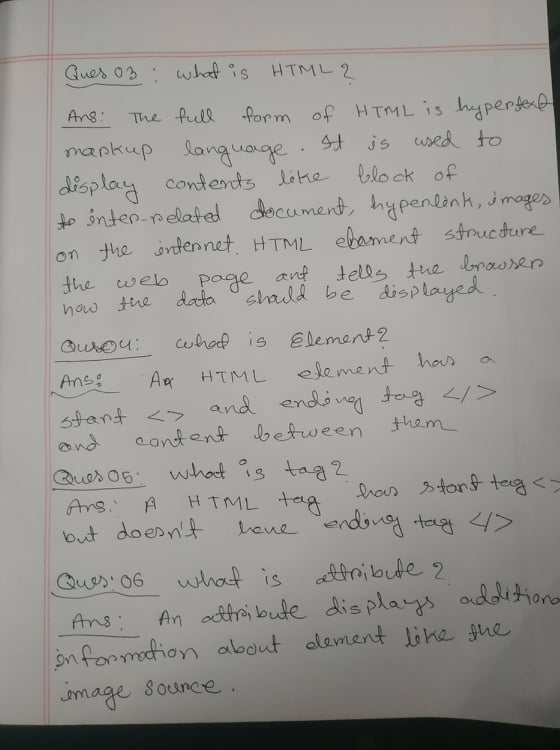 Ques 03 : What is HTML ?
Ans : The full form of HTML is hypertext
markup language. It is used to
display contents like block of
to inter-related document, hyperlink, images
on the internet. HTML element structure
the web page and tells the browser
how the data should be displayed.
Ques 04 : What is Element ?
Ans : A HTML element has a
start <> and ending tag </>
and content between them
Ques 05 : What is tag ?
Ans : A HTML tag has start tag <>
but doesn't have ending tag </>
Ques : 06 What is attribute ?
Ans : An attribute displays additiona
information about element like the
image source.